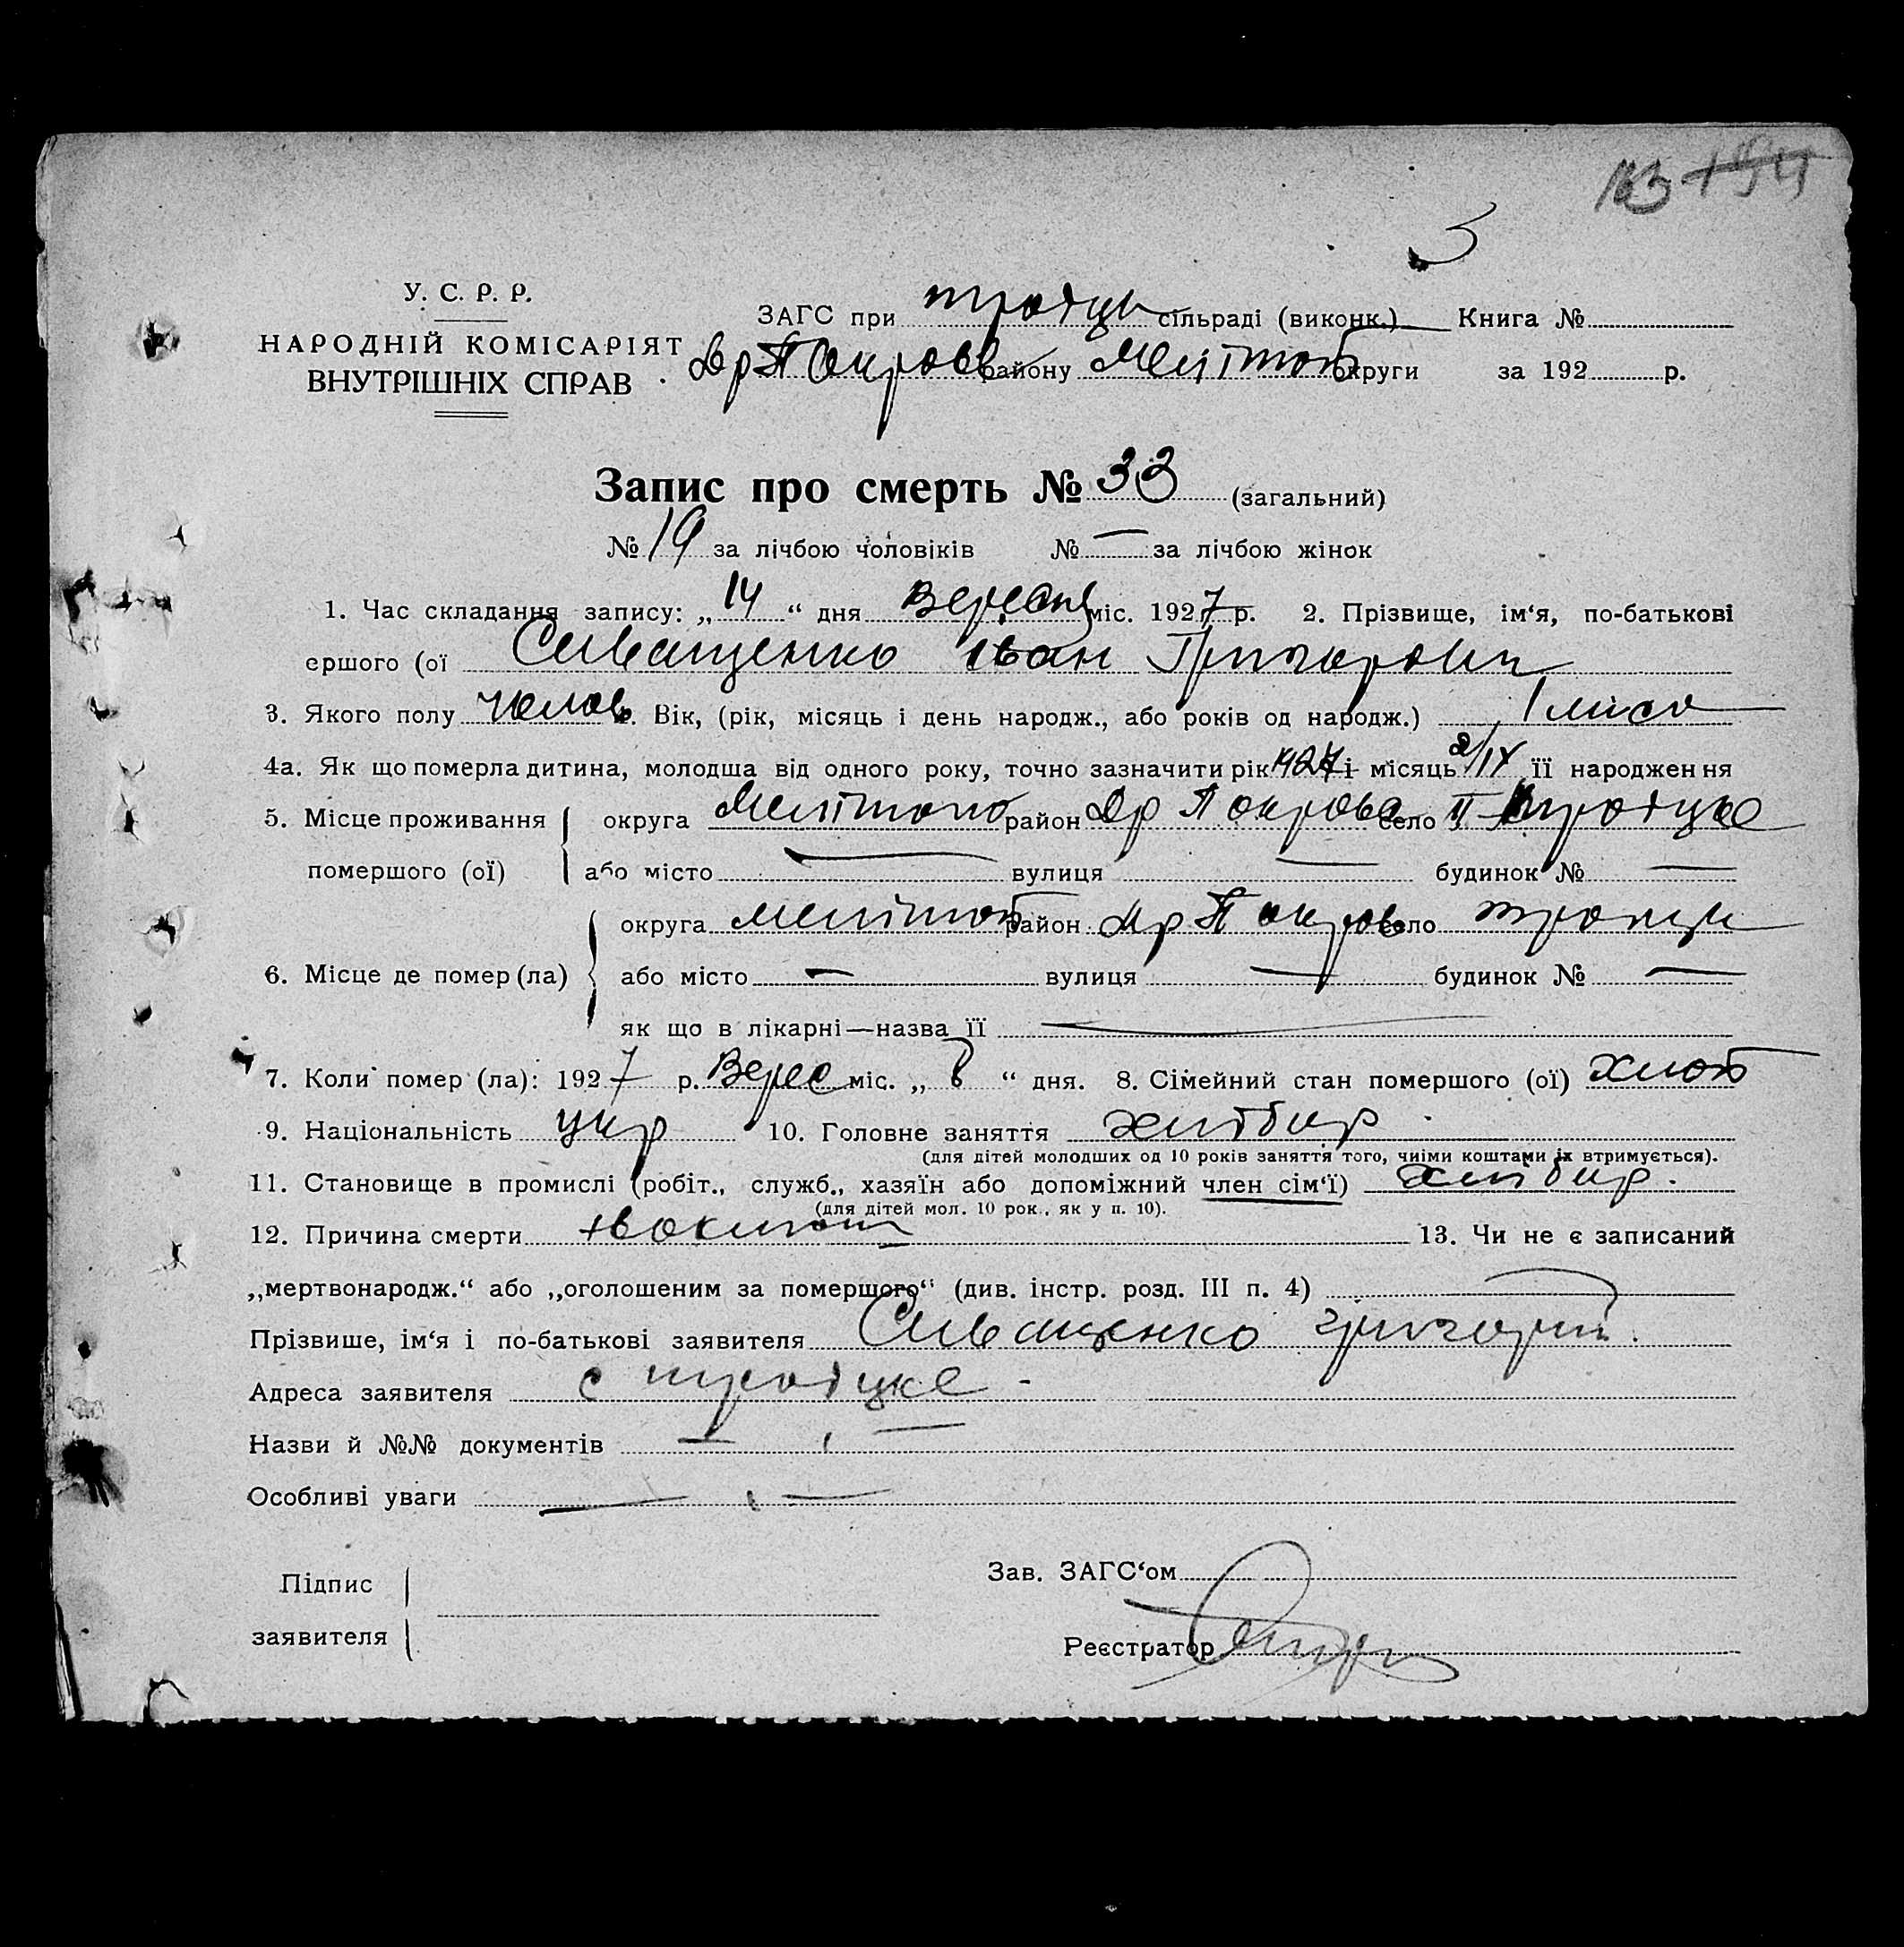 3
У. С. Р. Р.
НАРОДНІЙ КОМІСАРІЯТ
ВНУТРІШНІХ СПРАВ
ЗАГС при сільраді (виконк.) Книга №
району Мелітоп округи за 192 р.
Запис про смерть № 33 (загальний)
№ 19 за лічбою чоловіків № — за лічбою жінок
1. Час складання запису: „ 14 “ дня Вересня міс. 1927 р. 2. Прізвище, ім‘я, по-батькові
ершого (ої Іван Григоров
3. Якого полу Вік, (рік, місяць і день народж., або років од народж.) 1 міся
4а. Як що померла дитина, молодша від одного року, точно зазначити рік 1927 і місяць її народження
5. Місце проживання округа Мелітоп район село
помершого (ої) або місто — вулиця — будинок № —
округа Меліто район село
6. Місце де помер (ла) або місто — вулиця — будинок № —
як що в лікарні—назва її —
7. Коли помер (ла): 1927 р. Верес міс. „ 8 “ дня. 8. Сімейний стан помершого (ої)
9. Національність укр 10. Головне заняття хлібор
(для дітей молодших од 10 років заняття того, чиїми коштами їх втримується).
11. Становище в промислі (робіт., служб., хазяїн або допоміжний член сім‘ї) хлібор.
(для дітей мол. 10 рок., як у п. 10).
12. Причина смерти 13. Чи не є записаний
„мертвонародж.“ або „оголошеним за помершого“ (див. інстр. розд. III п. 4) —
Прізвише, ім‘я і по-батькові заявителя Григорій
Адреса заявителя с Троїцке -
Назви й №№ документів — —
Особливі уваги — —
Підпис
заявителя
Зав. ЗАГС‘ом
Реєстратор